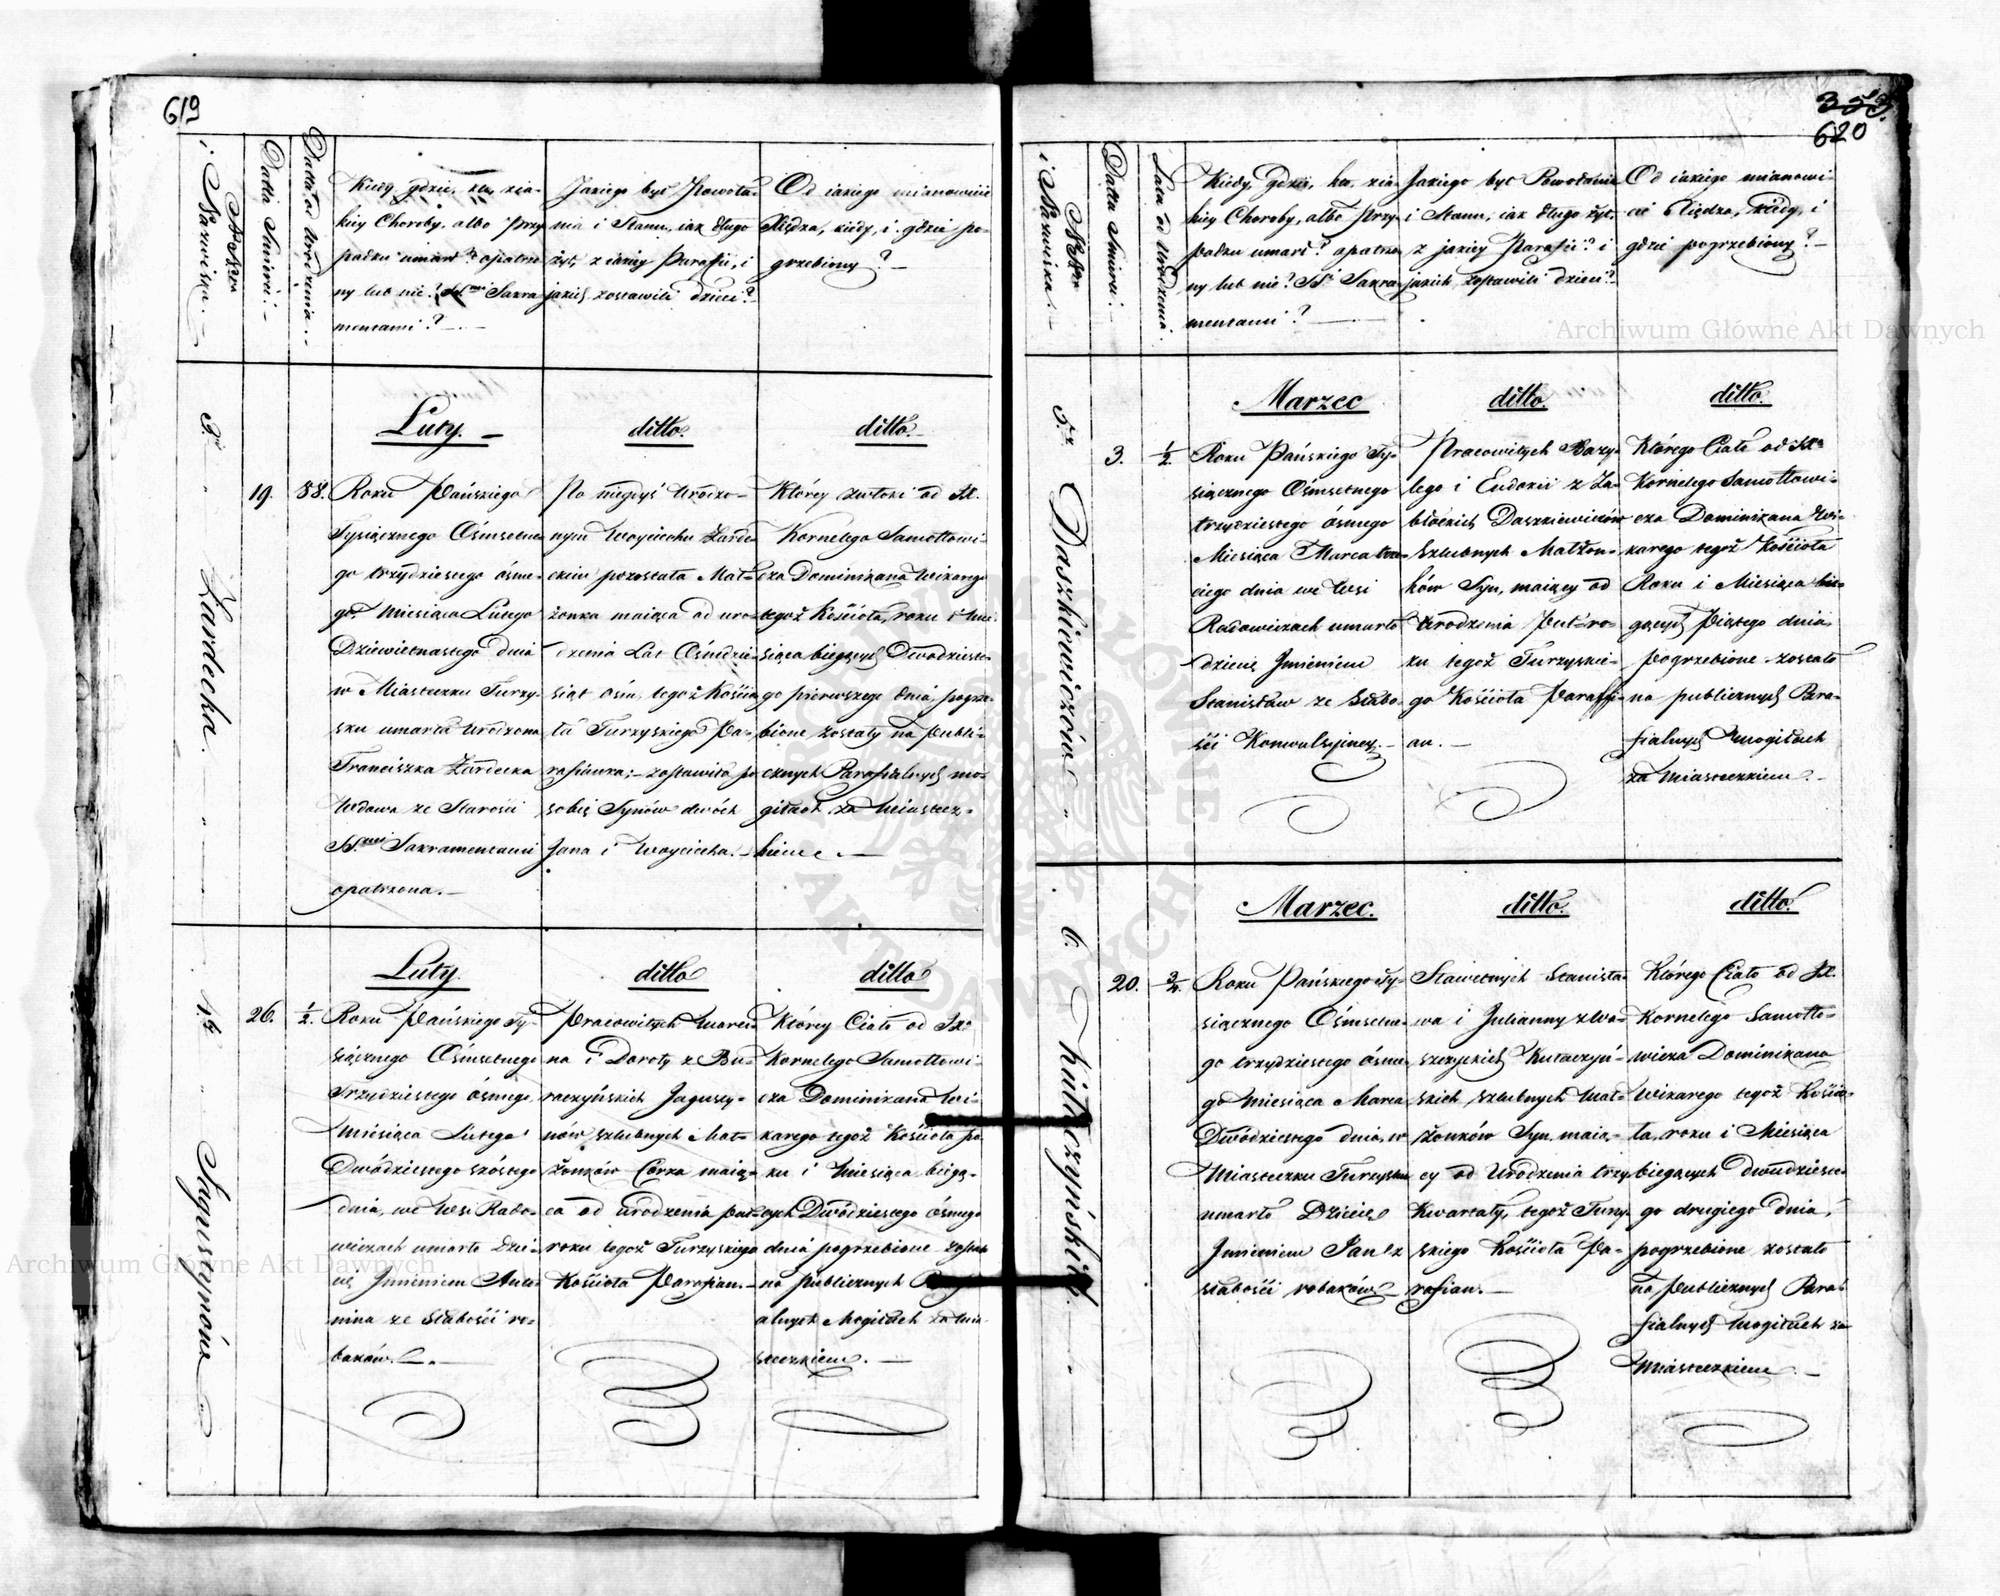 619
i Nazwiska.
Numer
Data Śmierci.
Data od Urodzenia.
Kiedy, gdzie, kto, z ja-
kiey Choroby, albo Przy
padku umarł? opatrzo
ny lub nie? SSmi Sakra
mentami?
Jakiego był Powoła-
nia i Stanu, jak długo
żył, z jakiey Parafii, i
jakich zostawili dzieci?
Od jakiego mianowicie
Xiędza, kiedy, i gdzie po-
grzebiony?
3. Żardecka.
19.
88.
Luty.
Roku Pańskiego
Tysiącznego Ośmsetne
go trzydziestego ósme-
go Miesiąca Lutego
Dziewietnastego dnia
w Miasteczku Turzy-
sku umarła Urodzona
Franciszka Żardecka
Wdowa ze Starości
SSmi Sakramentami
opatrzona.
ditto.
Po niegdyś Urodzo-
nym Woyciechu Żarde-
ckim pozostała Mał-
żonka maiąca od uro-
dzenia Lat Ośmdzie-
siąt ośm, tegoż Kościo
ła Turzyskiego Pa-
rafianka; zostawiła po
sobie Synów dwóch
Jana i Woyciecha.
ditto.
Którey zwłoki od JX.
Kornelego Samotłowi-
cza Dominikana Wikarego
tegoż Kościoła, roku i Mie-
siąca bieżących Dwodzieste-
go pierwszego dnia, pogrze-
bione zostały na Publi-
cznych Parafialnych mo-
giłach za Miastecz-
kiem.
4. Jaguszynów
26.
1/2.
Luty.
Roku Pańskiego Ty-
siącznego Ośmsetnego
Trzydziestego ósmego
Miesiąca Lutego
Dwódziestego szóstego
dnia, we Wsi Rado-
wiczach umarło Dzie-
cię Jmieniem Anto-
nina ze Słabości ro-
baków.
ditto
Pracowitych Marci-
na i Doroty z Bu-
raczyńskich Jaguszy-
nów szlubnych Mał-
żonków Córka maią-
ca od urodzenia puł-
roku tegoż Turzyskiego
Kościoła Parafian.
ditto
Którey Ciało od JX.
Kornelego Samotłowi-
cza Dominikana Wi-
karego tegoż Kościoła ro
ku i Miesiąca biegą-
cych Dwódziestego ósmego
dnia pogrzebione zostało
na publicznych
alnych Mogiłach za Mia-
steczkiem.
353.
620
i Nazwiska.
Numer
Data Śmierci.
Lata od Urodzenia.
Kiedy, gdzie, kto, z ja-
kiey Choroby, albo Przy-
padku umarł? opatrzo-
ny lub nie? SS Sakra-
mentami?
Jakiego był Powołania
i Stanu, jak długo żył,
z jakiey Parafii? i
jakich zostawili dzieci?
Od jakiego mianowi
cie Xiędza, kiedy, i
gdzie pogrzebiony?
5. Daszkiewiczów
3.
1/2.
Marzec
Roku Pańskiego Ty-
siącznego Ośmsetnego
trzydziestego ósmego
Miesiąca Marca trze-
ciego dnia we Wsi
Radowiczach umarło
dziecię Jmieniem
Stanisław ze Słabo-
ści Konwulsyjney.
ditto.
Pracowitych Bazy-
lego i Eudoxii z Za-
błockich Daszkiewiczów
Szlubnych Małżon-
ków Syn, maiący od
Urodzenia puł-ro-
ku tegoż Turzyskie-
go Kościoła Paraffi-
an.
ditto.
Którego Ciało od JX
Kornelego Samotłowi-
cza Dominikana Wi-
karego tegoż Kościoła
Roku i Miesiąca bie-
gących Piątego dnia,
pogrzebione zostało
na publicznych Para-
fialnych Mogiłach
za Miasteczkiem.
6. Kułaczyńskich.
20.
3/4.
Marzec.
Roku Pańskiego Ty-
siącznego Ośmsetne-
go trzydziestego ósme-
go Miesiąca Marca
Dwódziestego dnia, w
Miasteczku Turzysku
umarło Dziecię
Jmieniem Jan z
słabości robaków
ditto.
Sławetnych Stanisła-
wa i Julianny z Wo-
szczyckich Kułaczyń-
skich, szlubnych Mał-
żonków Syn, maią-
cy od Urodzenia trzy
Kwartały, tegoż Turzy-
skiego Kościoła Pa-
rafian.
ditto.
Którego Ciało od JX.
Kornelego Samotło-
wicza Dominikana
Wikarego tegoż Kościo-
ła, roku i Miesiąca
biegących Dwudzieste-
go drugiego dnia,
pogrzebione zostało
na Publicznych Para-
fialnych Mogiłach za
Miasteczkiem
Archiwum Główne Akt Dawnych
Archiwum Główne Akt Dawnych